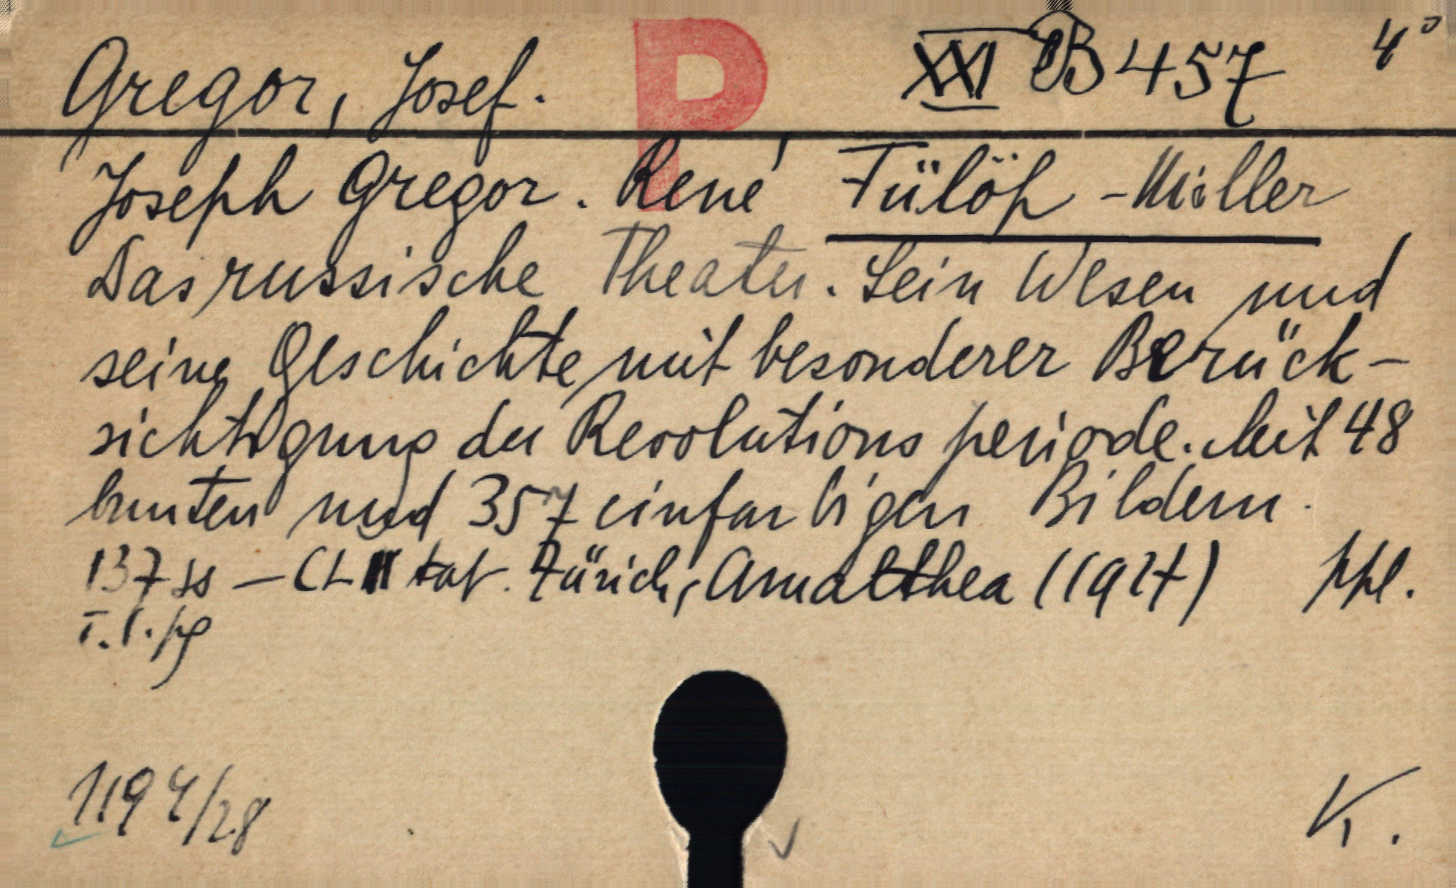 Gregor, Josef. P XXI B 457 4°
Joseph Gregor. René Fülöp-Miller
Das russische Theater. Sein Wesen und
seine Geschichte mit besonderer Berück-
sichtigung der Revolutions periode. Mit 48
bunten und 357 einfarbigen Bildern.
137 ss – CL taf. Zürich, Amalthea (1927) ppl.
T. l. pg
1194/28 K.